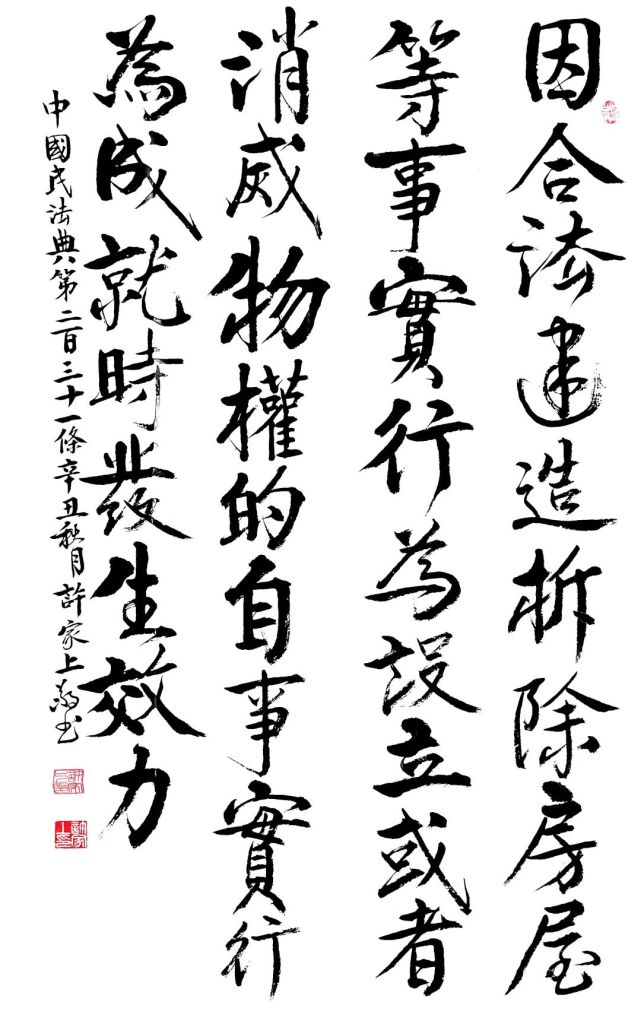 因合法建造拆除房屋
等事實行為設立或者
消滅物權的自事實行
為成就時發生效力
中國民法典第二百三十一條辛丑秋月許家上敬书